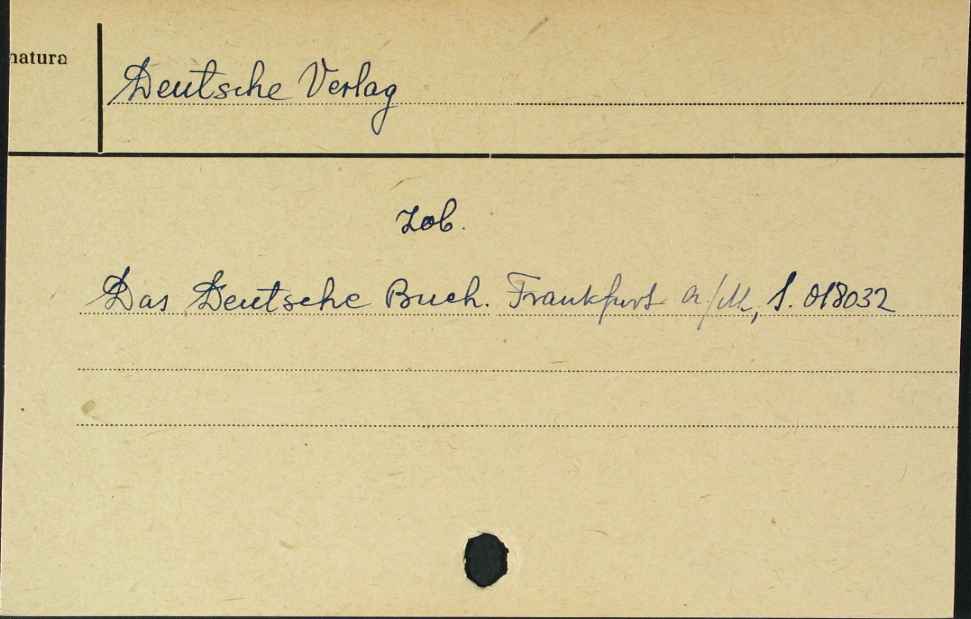 natura
Deutsche Verlag
Zob.
Das Deutsche Buch. Frankfurt a/M, S. 018032